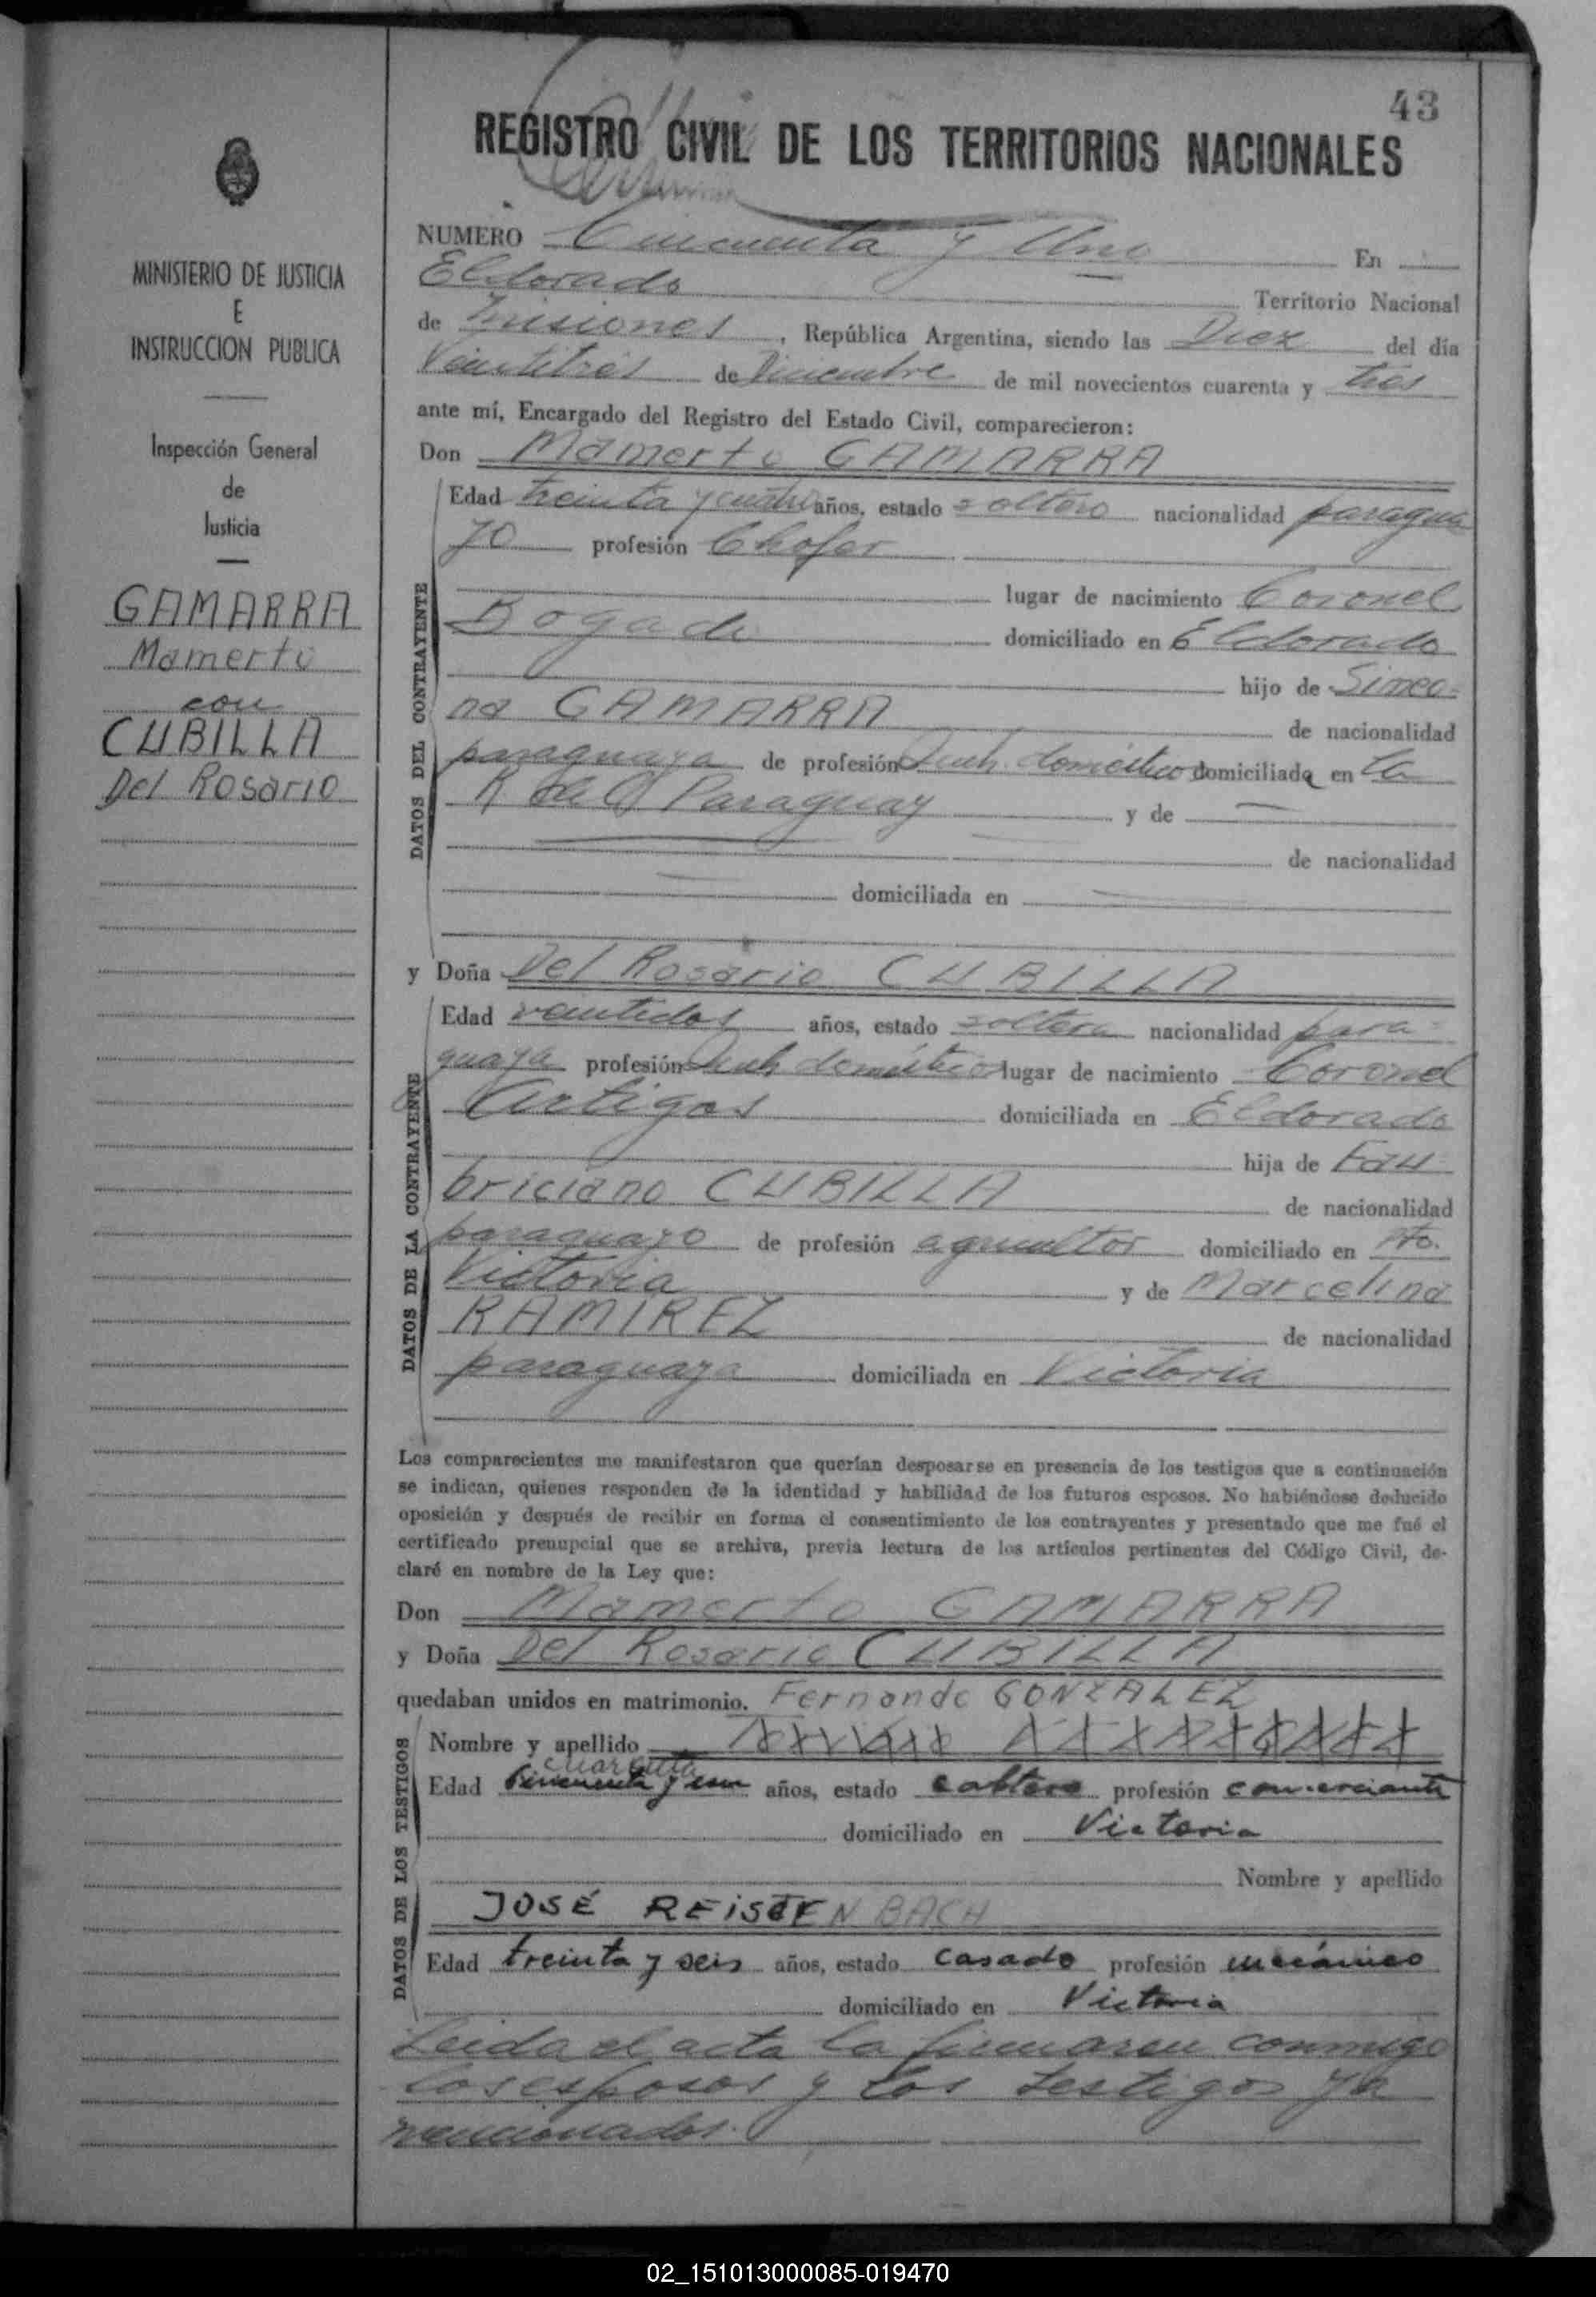 43
REGISTRO CIVIL DE LOS TERRITORIOS NACIONALES
MINISTERIO DE JUSTICIA
E
INSTRUCCION PUBLICA
Inspección General
de
Justicia
GAMARRA
Mamerto
con
CUBILLA
Del Rosario
NUMERO Cincuenta y Uno En
Eldorado Territorio Nacional
de Misiones, República Argentina, siendo las Diez del día
Veintitrés de Diciembre de mil novecientos cuarenta y tres
ante mí, Encargado del Registro del Estado Civil, comparecieron:
Don Mamerto GAMARRA
DATOS DEL CONTRAYENTE
Edad treinta y cuatro años, estado soltero nacionalidad paragua
yo profesión Chofer
lugar de nacimiento Coronel
Bogado domiciliado en Eldorado
hijo de Simeo-
na GAMARRA de nacionalidad
paraguaya de profesión domésticos domiciliada en la
R Paraguay y de
de nacionalidad
domiciliada en
y Doña Del Rosario CUBILLA
DATOS DE LA CONTRAYENTE
Edad veintidos años, estado soltera nacionalidad para-
guaya profesión domésticos lugar de nacimiento Coronel
Artigas domiciliada en Eldorado
hija de Fau-
briciano CUBILLA de nacionalidad
paraguayo de profesión agricultor domiciliado en Pto.
Victoria y de Marcelina
RAMIREZ de nacionalidad
paraguaya domiciliada en Victoria
Los comparecientes me manifestaron que querían desposarse en presencia de los testigos que a continuación
se indican, quienes responden de la identidad y habilidad de los futuros esposos. No habiéndose deducido
oposición y después de recibir en forma el consentimiento de los contrayentes y presentado que me fué el
certificado prenupcial que se archiva, previa lectura de los artículos pertinentes del Código Civil, de-
claré en nombre de la Ley que:
Don Mamerto GAMARRA
y Doña Del Rosario CUBILLA
quedaban unidos en matrimonio. Fernando GONZALEZ
DATOS DE LOS TESTIGOS
Nombre y apellido
cuarenta
Edad cincuenta y un años, estado soltero profesión comerciante
domiciliado en Victoria
Nombre y apellido
JOSÉ REISTENBACH
Edad treinta y seis años, estado casado profesión mecánico
domiciliado en Victoria
Leida el acta la firmaron conmigo
los esposos y los testigos ya
mencionados.
02_151013000085-019470